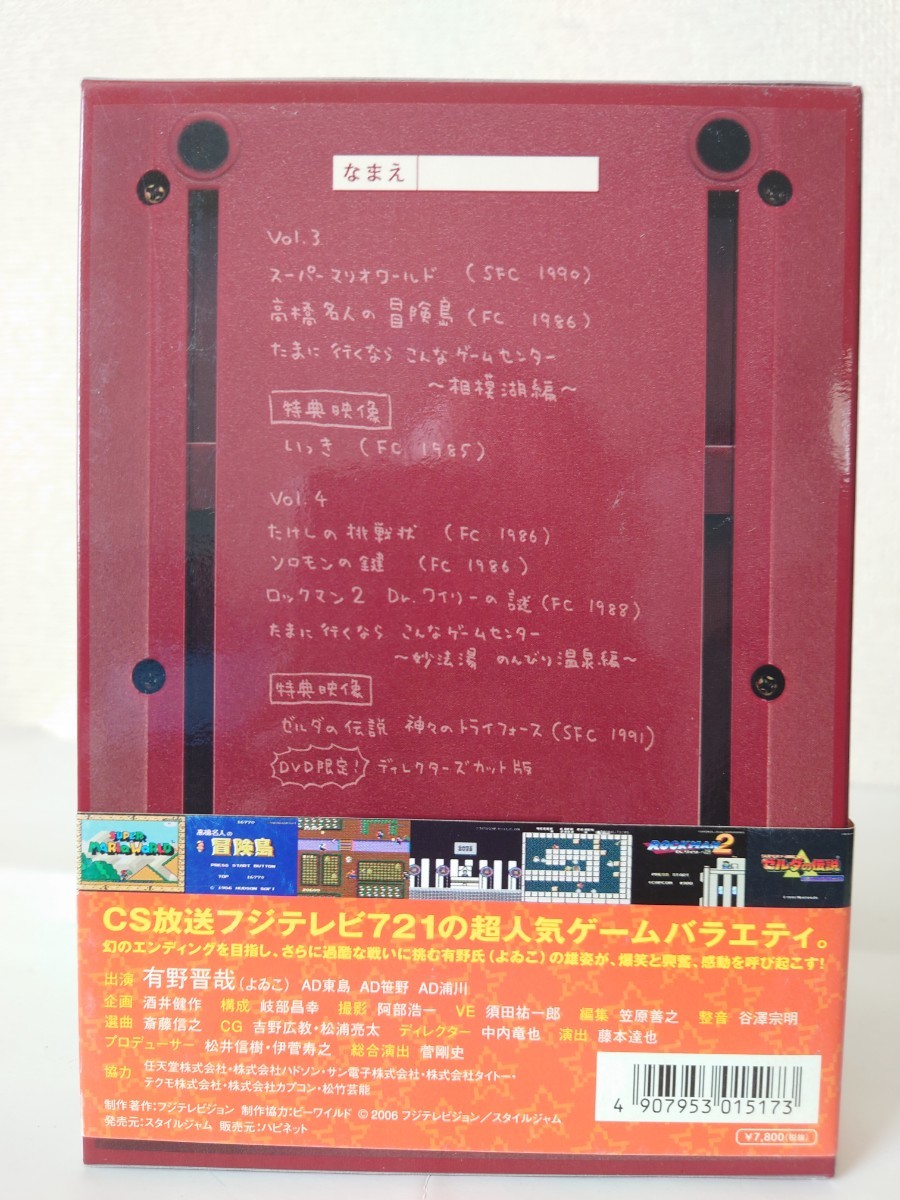 なまえ
Vol.3
スーパーマリオワールド (SFC 1990)
高橋名人の冒険島 (FC 1986)
たまに行くなら こんなゲームセンター
～相模湖編～
特典映像
いっき (FC 1985)
Vol.4
たけしの挑戦状 (FC 1986)
ソロモンの鍵 (FC 1986)
ロックマン2 Dr.ワイリーの謎 (FC 1988)
たまに行くなら こんなゲームセンター
～妙法湯 のんびり温泉編～
特典映像
ゼルダの伝説 神々のトライフォース (SFC 1991)
DVD限定! ディレクターズカット版
SUPER
MARIOWORLD
高橋名人の
冒険島
PRESS START BUTTON
TOP
© 1986 HUDSON SOFT
ROCKMAN 2
ゼルダの伝説
CS放送フジテレビ721の超人気ゲームバラエティ。
幻のエンディングを目指し、さらに過酷な戦いに挑む有野氏(よゐこ)の雄姿が、爆笑と興奮、感動を呼び起こす!
出演 有野晋哉(よゐこ) AD東島 AD笹野 AD浦川
企画 酒井健作 構成 岐部昌幸 撮影 阿部浩一 VE 須田祐一郎 編集 笠原善之 整音 谷澤宗明
選曲 斎藤信之 CG 吉野広教・松浦亮太 ディレクター 中内竜也 演出 藤本達也
プロデューサー 松井信樹・伊菅寿之 総合演出 菅剛史
協力 任天堂株式会社・株式会社ハドソン・サン電子株式会社・株式会社タイトー・
テクモ株式会社・株式会社カプコン・松竹芸能
制作著作:フジテレビジョン 制作協力:ビーワイルド © 2006 フジテレビジョン/スタイルジャム
発売元:スタイルジャム 販売元:ハピネット
4 907953 015173
¥7,800(税抜)